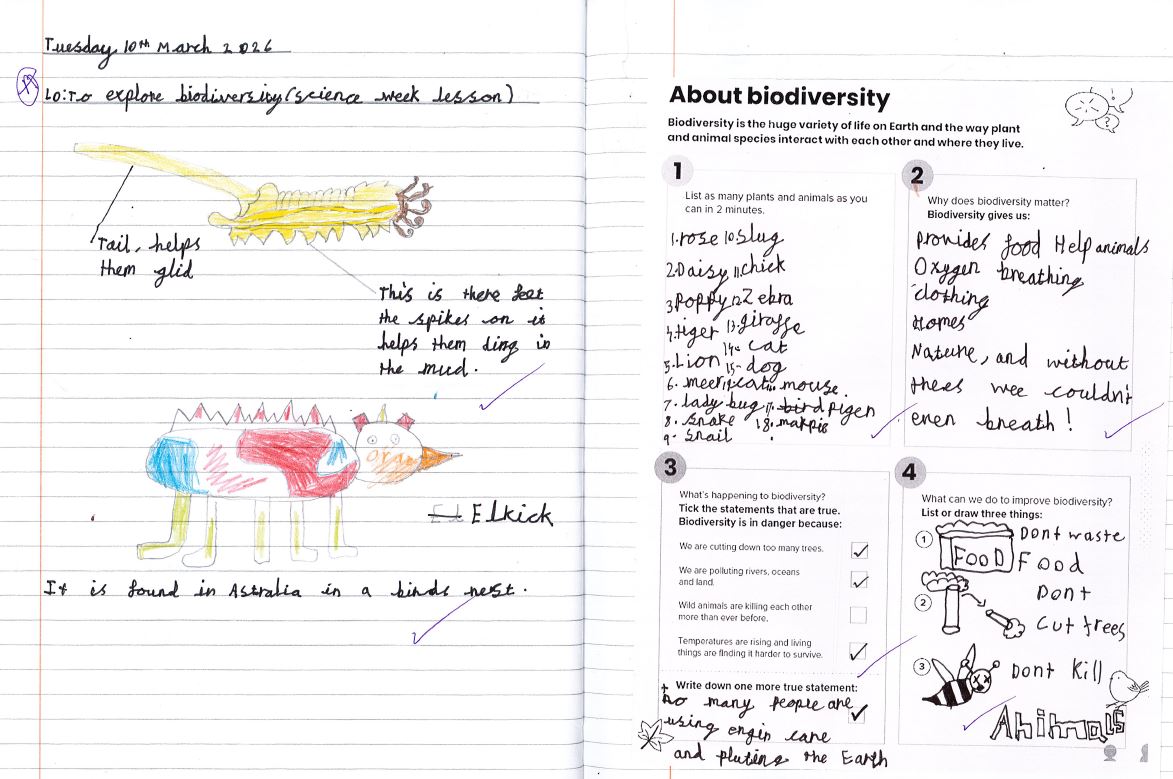 Tuesday 10th March 2026
LO: To explore biodiversity (science week lesson)
Tail, helps
them glid
This is there feet
the spikes on it
helps them ding in
the mud.
Elkick
It is found in Astralia in a birds nest.
About biodiversity
Biodiversity is the huge variety of life on Earth and the way plant
and animal species interact with each other and where they live.
1
List as many plants and animals as you
can in 2 minutes.
1. rose 10 Slug
2. Daisy 11 chick
3 Poppy 12 Zebra
4. tiger 13. giraffe
14. cat
5. Lion 15. dog
6. meercat 16. mouse.
7. lady bug 17. bird pigen
8. snake 18. makpie
9. snail
2
Why does biodiversity matter?
Biodiversity gives us:
provides food Help animals
Oxygen breathing
clothing
Homes
Nature, and without
trees wee couldn't
even breath!
3
What's happening to biodiversity?
Tick the statements that are true.
Biodiversity is in danger because:
We are cutting down too many trees.
We are polluting rivers, oceans
and land.
Wild animals are killing each other
more than ever before.
Temperatures are rising and living
things are finding it harder to survive.
Write down one more true statement:
to many people are
using engin care
and pluting the Earth
4
What can we do to improve biodiversity?
List or draw three things:
1 Dont waste
FOOD Food
2 Dont
cut trees
3 Dont Kill
Animals